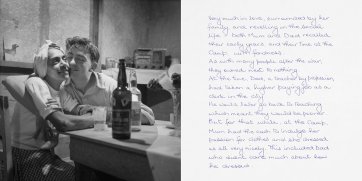 Very much in love, surrounded by her
family and revelling in the social
life - both Mum and Dad recalled
their early years and their time at the
Camp with fondness.
As with many people after the war,
they owned next to nothing.
At the time, Dad, a teacher by profession,
had taken a higher paying job as a
clerk in the city.
He would later go back to teaching
which meant they would be poorer.
But for that while, at the Camp,
Mum had the cash to indulge her
passion for clothes and she dressed
us all very nicely. This included Dad
who didn't care much about how
he dressed.